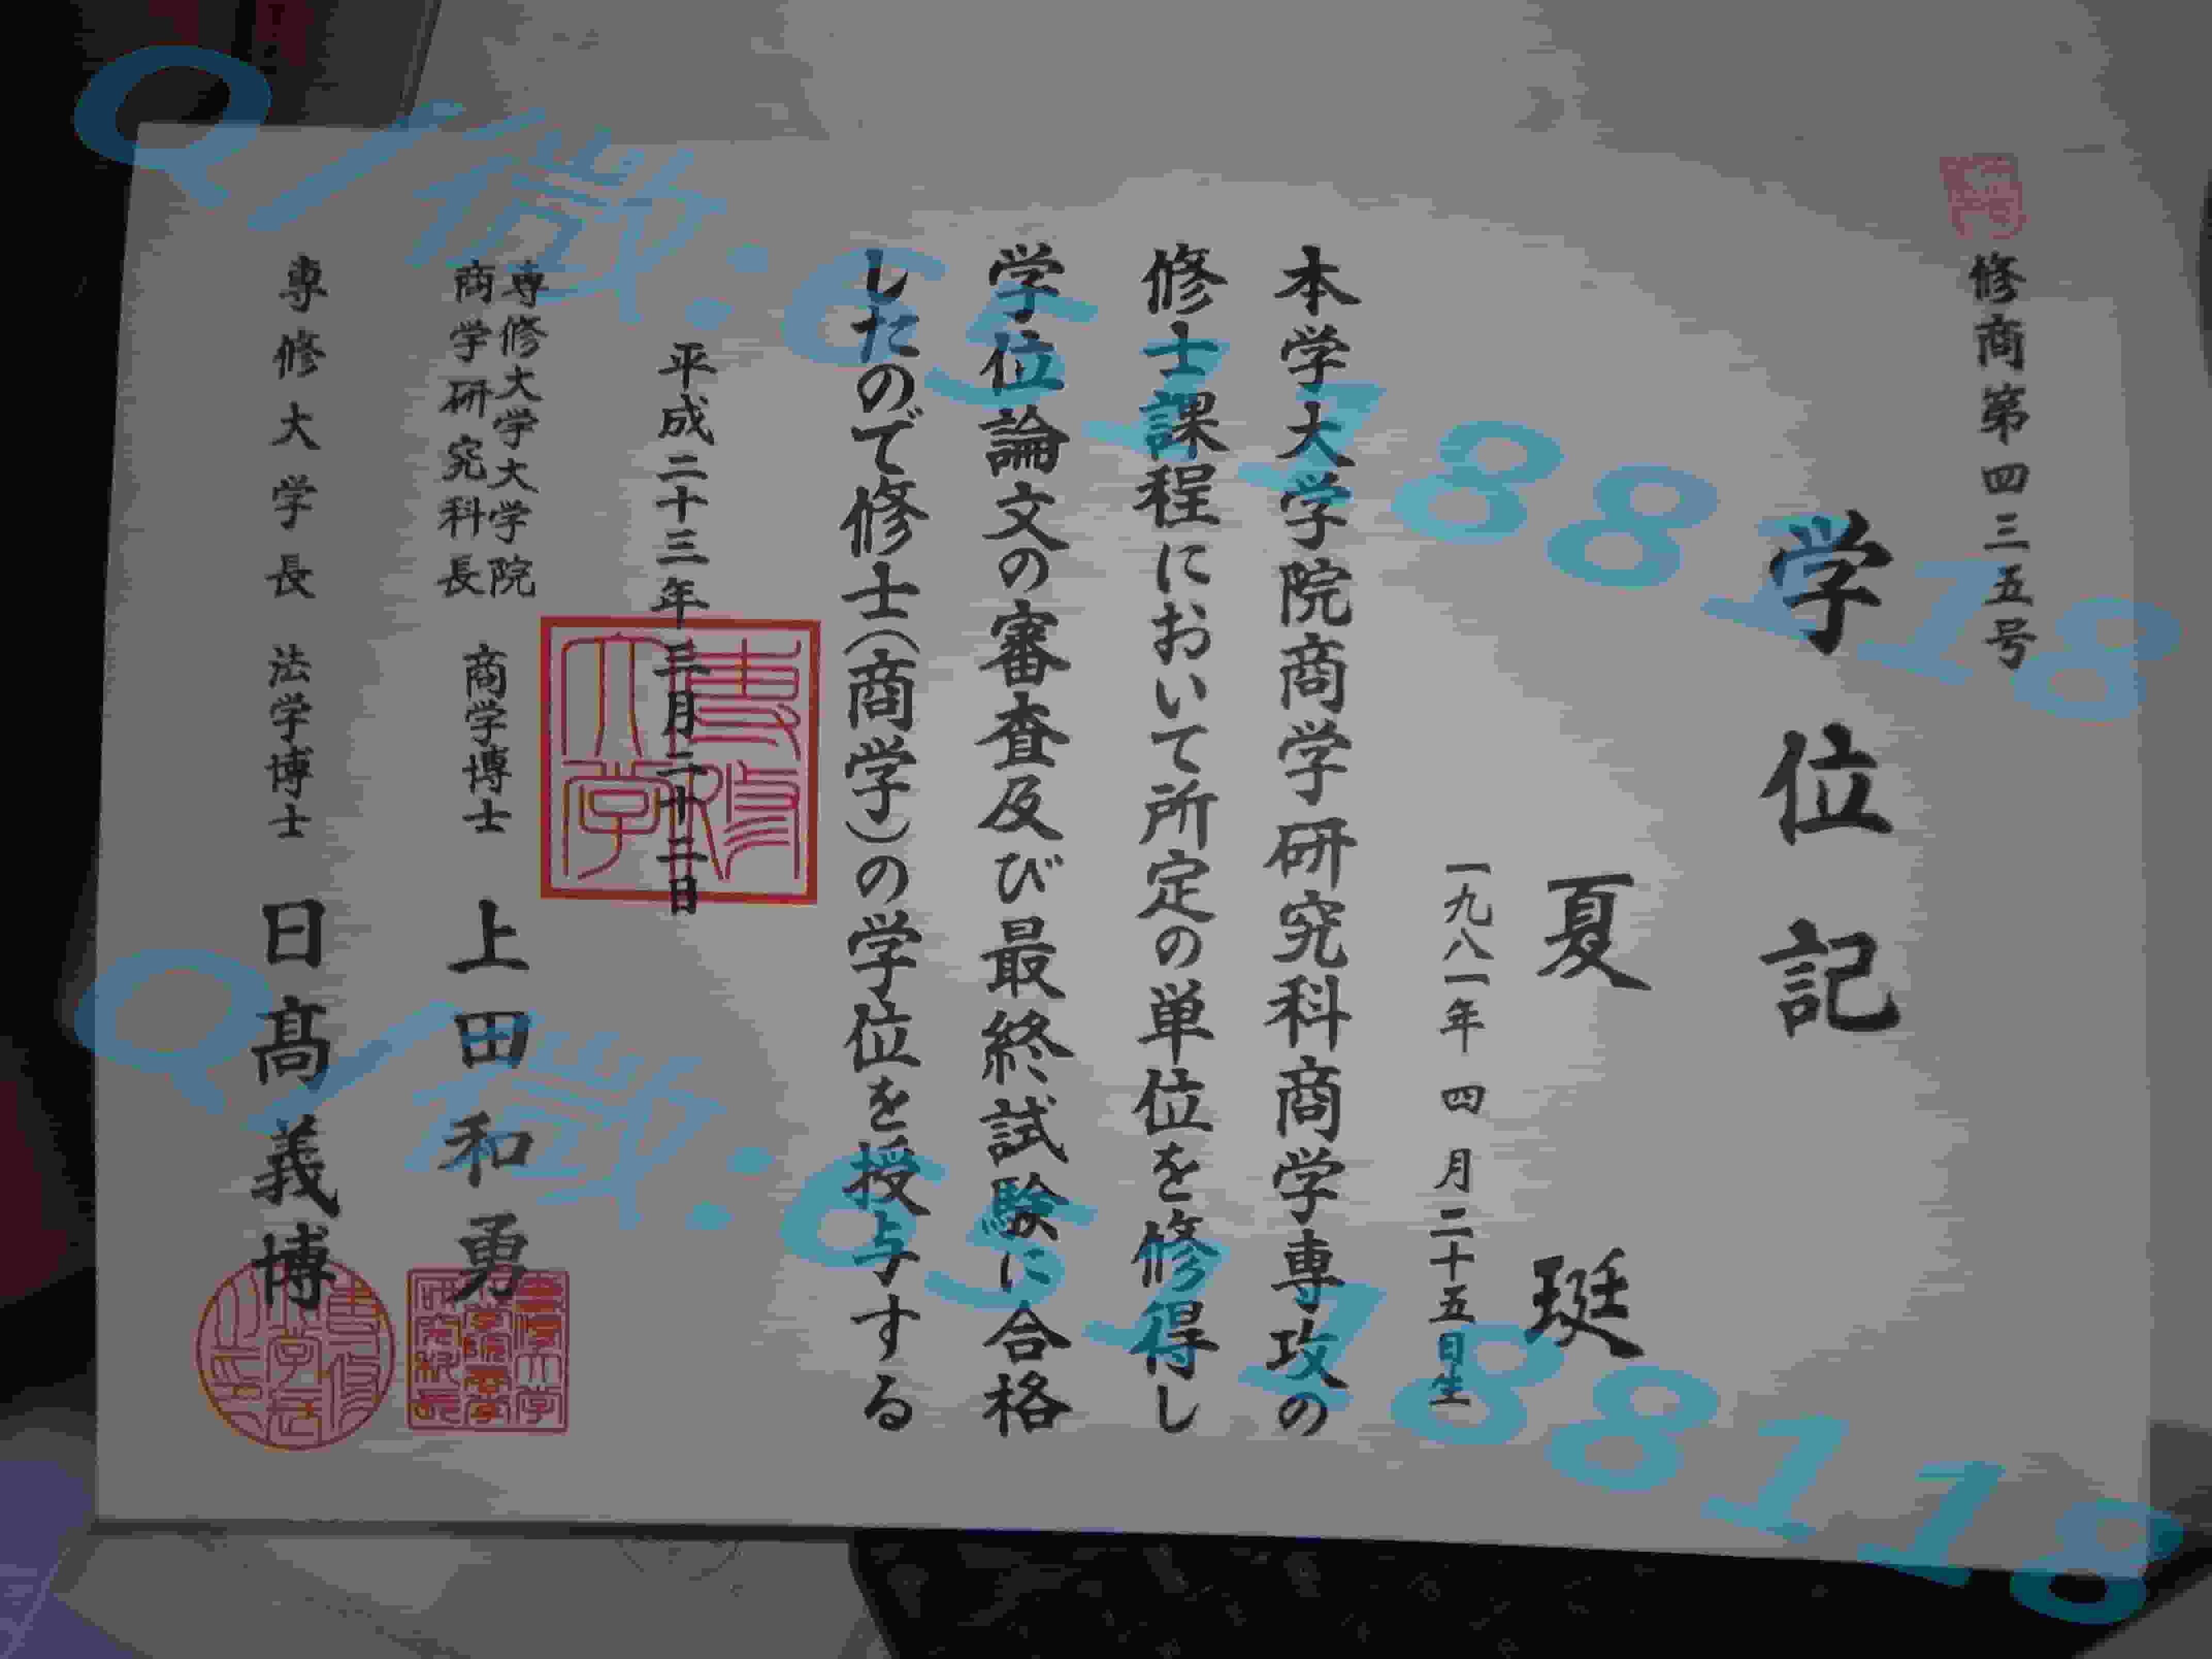 修商第四三五号
学位記
夏 珽
一九八一年四月二十五日生
本学大学院商学研究科商学専攻の
修士課程において所定の単位を修得し
学位論文の審査及び最終試験に合格
したので修士(商学)の学位を授与する
平成二十三年三月二十二日
専修大学
専修大学大学院
商学研究科長 商学博士 上田和勇
専修大学長 法学博士 日髙義博
Q/微:65788118
Q/微:65788118